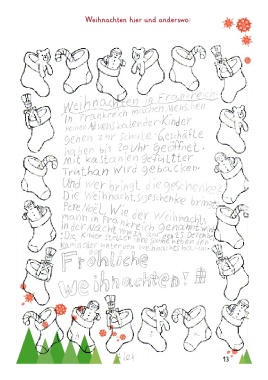 Weihnachten hier und anderswo:
Weihnachten in Frankreich
In Frankreich machen Menschen
keinen Adventskalender. Kinder
gehen zur Schule. Geschäfte
haben bis 20 Uhr geöffnet.
Mit kastanien gefüllter
Truthan wird gebacken.
Und wer bringt die geschenke?
Die Weihnachtsgeschenke bringt
Pere Noel. Wie der Weihnachts
mann in Frankreich genannt wird.
In der Nacht 25 Dezember
Die Kinder ihre neben den
kamin oder unter den
Fröhliche
weihnachten!
13